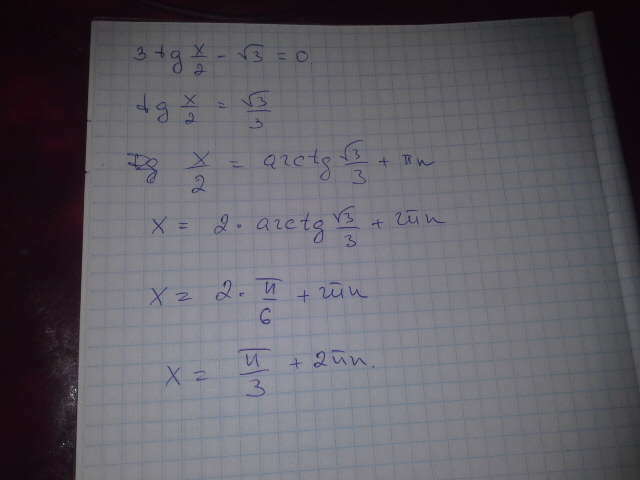 3 tg x/2 - √3 = 0
tg x/2 = √3/3
x/2 = arctg √3/3 + πn
x = 2 · arctg √3/3 + 2πn
x = 2 · π/6 + 2πn
x = π/3 + 2πn.